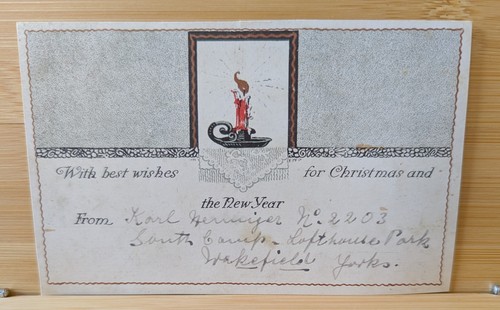 With best wishes for Christmas and
the New Year
From Karl No. 2203
South Camp - Lofthouse Park
Wakefield Yorks.